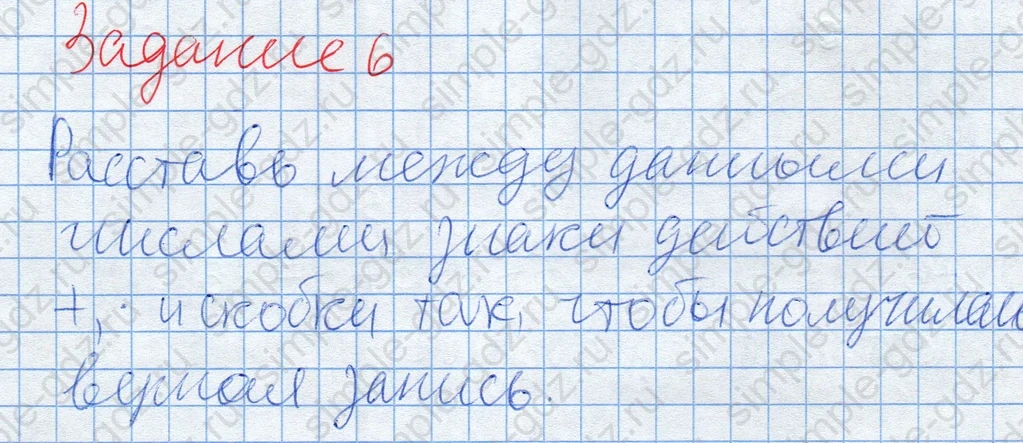 Задание 6
Расставь между данными
числами знаки действий
+, · и скобки так, чтобы получилась
верная запись.
simple-gdz.ru